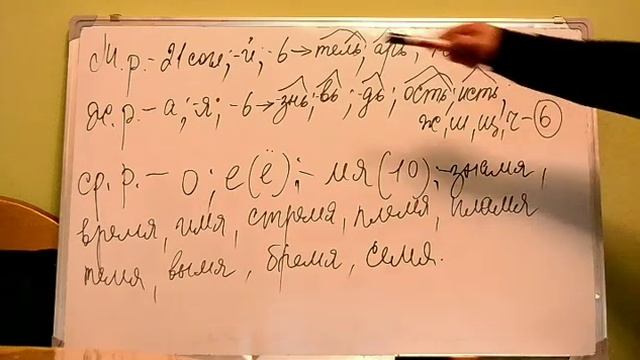 М.р. - 21 согл; -й; -ь → тель, арь,
Ж.р. - а; -я; -ь → знь; вь; -дь; ость; исть,
ж, ш, щ, ч - ь
ср. р. - о; е(ё); - мя (10); - знамя,
время, имя, стремя, племя, пламя
темя, вымя, бремя, семя.